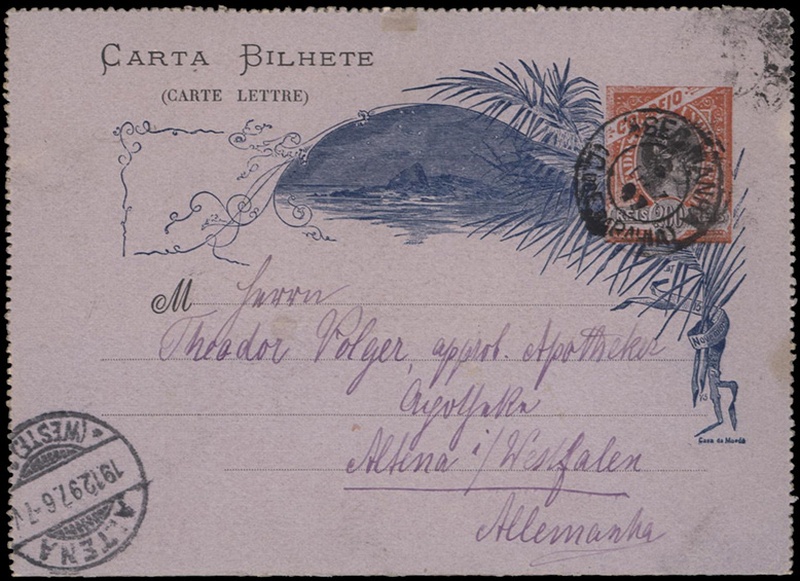 CARTA BILHETE
(CARTE LETTRE)
CORREIO
REIS 200
97
M Herrn
Theodor Volger, approb. Apotheker
Apotheke
Altena i/Westfalen
Allemanha
Casa da Moeda
ALTENA
19.12.97.6-7
(WESTF.)